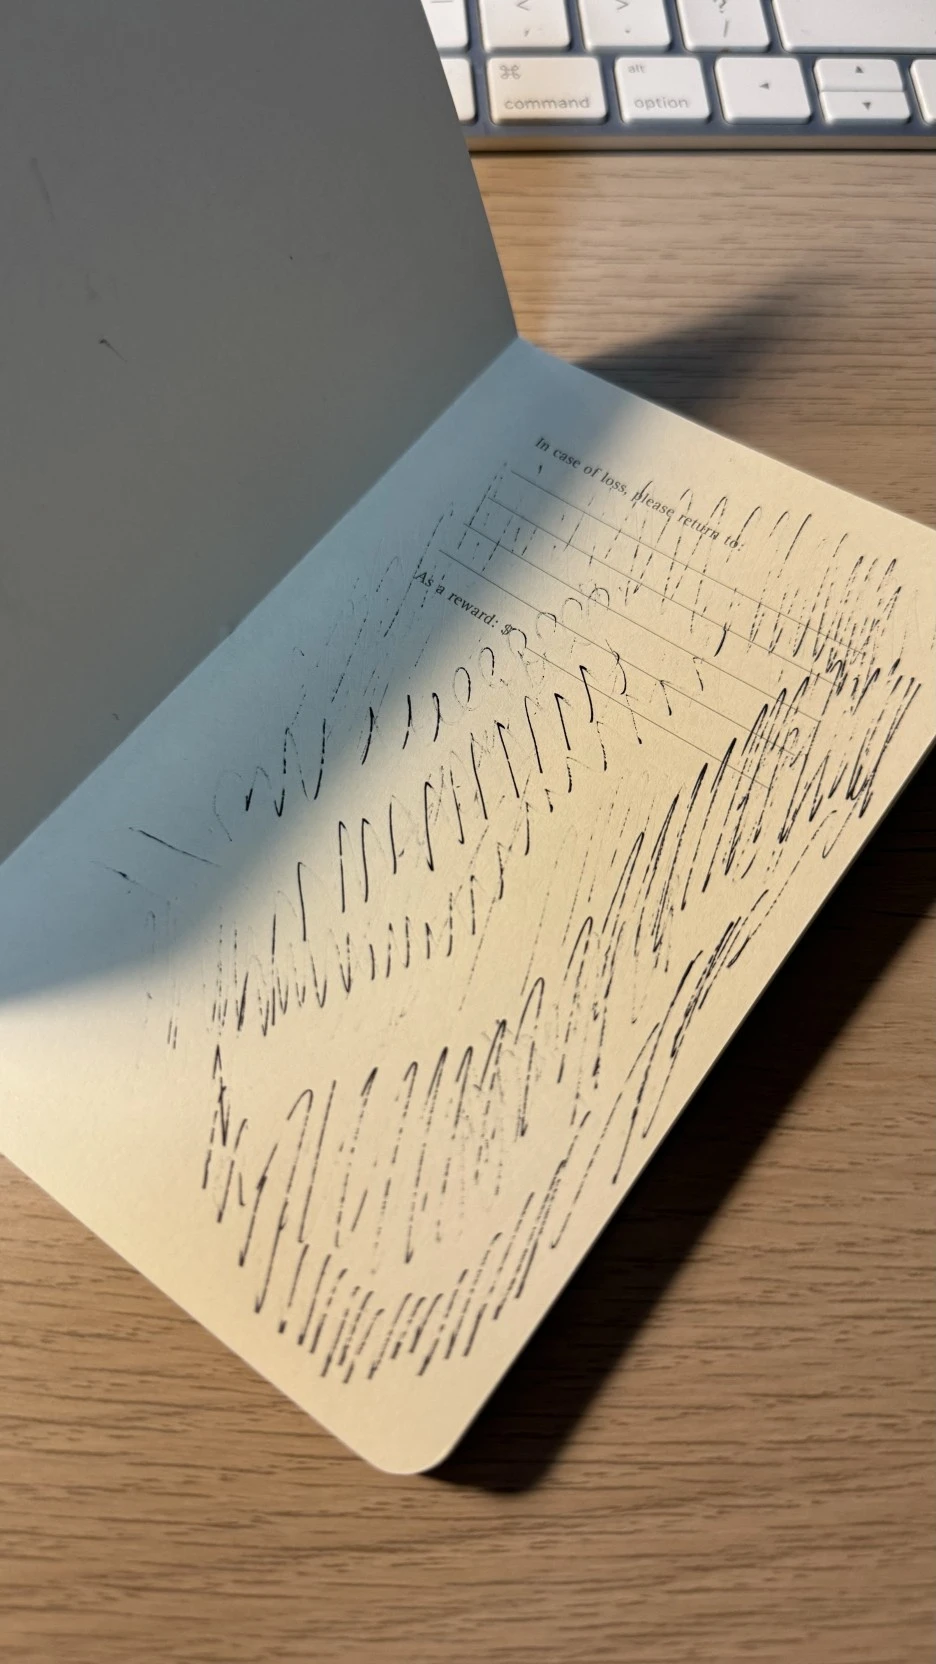 < >
, . /
⌘ alt
command option
In case of loss, please return to:
As a reward: $